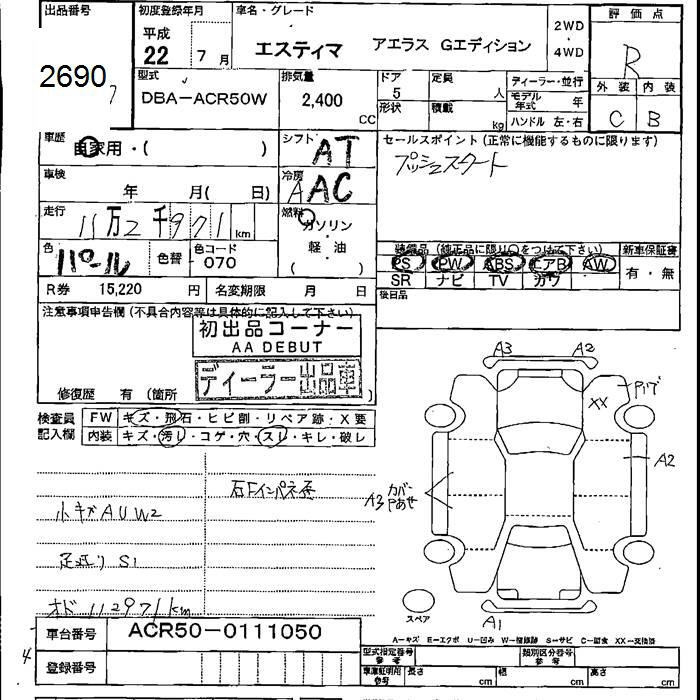 出品番号
2690
初度登録年月
平成 22 7 月
車名・グレード
エスティマ アエラス Gエディション
2WD ・ 4WD
評価点
R
外装 内装
C B
型式
DBA-ACR50W
排気量
2,400 CC
ドア
5
形状
定員
人
積載
kg
ディーラー・並行
モデル年式 年
ハンドル 左・右
車歴
自家用・( )
シフト
AT
セールスポイント(正常に機能するものに限ります)
プッシュスタート
車検
年 月( 日)
冷房
AAC
走行
11万2千971km
燃料
ガソリン
・
軽・油
( )
色
パール
色替
色コード
070
装備品(純正品に限り○をつけて下さい)
PS PW ABS エアB AW
SR ナビ TV カワ
新車保証書
有・無
R券 15,220 円
名変期限 月 日
後日品
注意事項申告欄(不具合内容等は具体的に記入して下さい)
初出品コーナー
AA DEBUT
ディーラー出品車
修復歴 有 (箇所 )
検査員記入欄
FW キズ・飛石・ヒビ割・リペア跡・X要
内装 キズ・汚レ・コゲ・穴・スレ・キレ・破レ
小キズAUW2
石Fインパネ歪
S1
オド 112971km
A3 A2
XX
A2
A3 カバー
A1
スペア
A-キズ E-エクボ U-凹み W-補修跡 S-サビ C-腐食 XX-交換済
車台番号 ACR50-0111050
登録番号
4
型式指定番号 参考
類別区分番号 参考
車庫証明用 参考
長さ cm
幅 cm
高さ cm